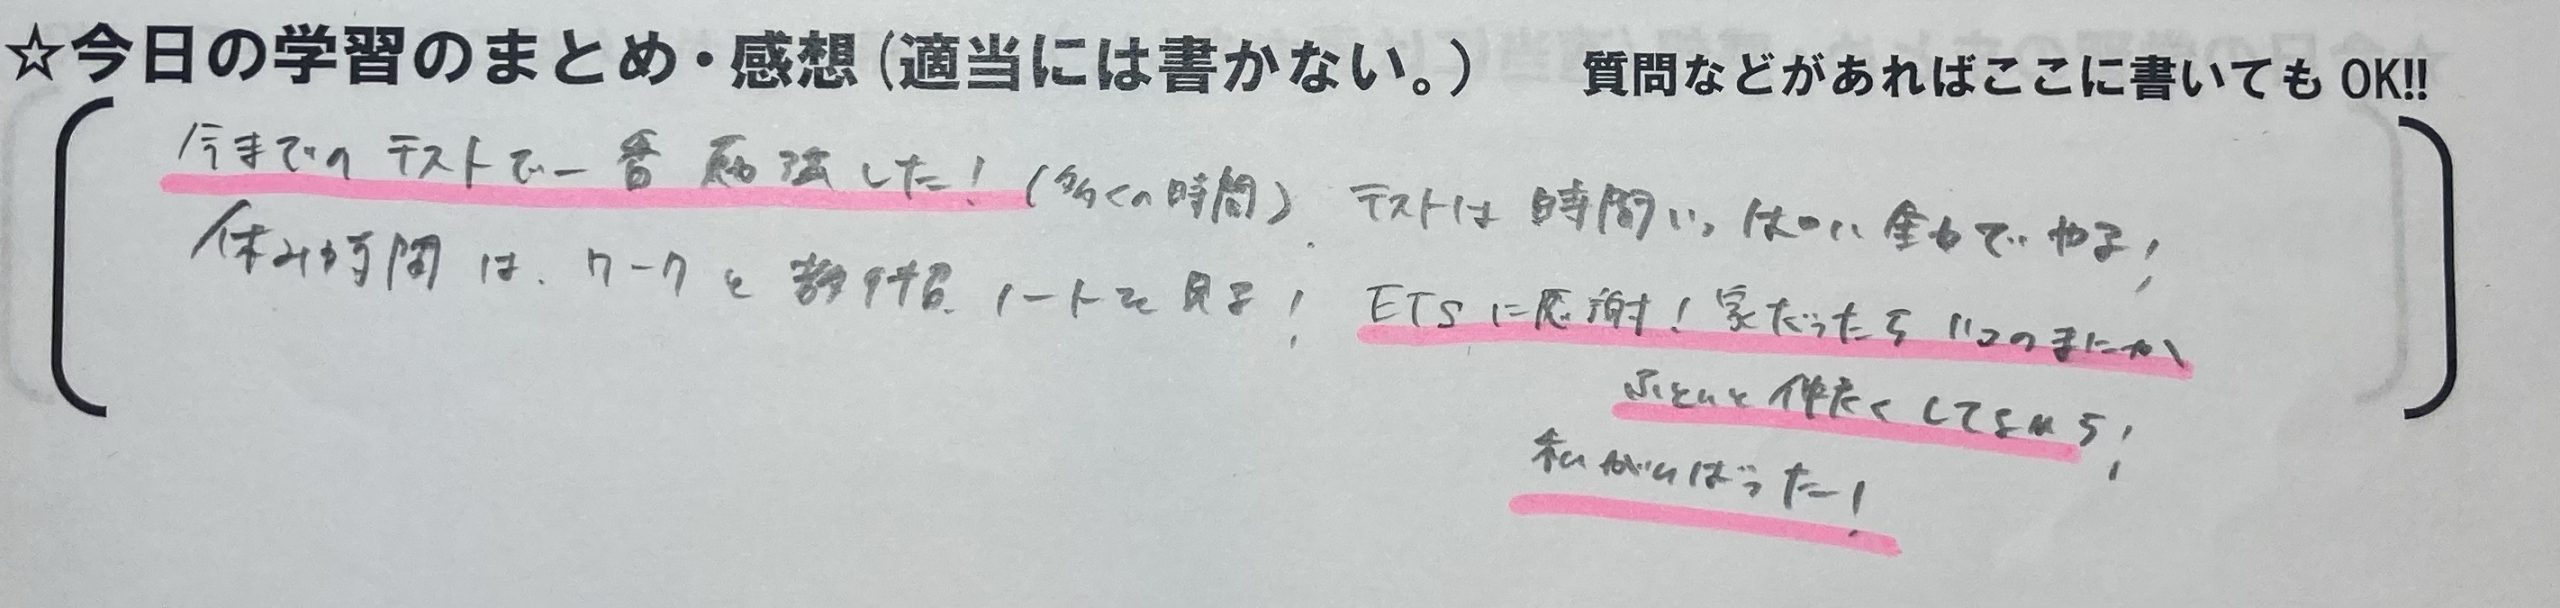 ☆今日の学習のまとめ・感想(適当には書かない。) 質問などがあればここに書いてもOK!!
今までのテストで一番勉強した!(多くの時間)
休み時間は、ワークと 学習ノートを見る!
テストは時間いっぱい全力でやる!
ETSに感謝!家だったらいつのまにか
ふとんと仲良くしてるから!
私がんばったー!